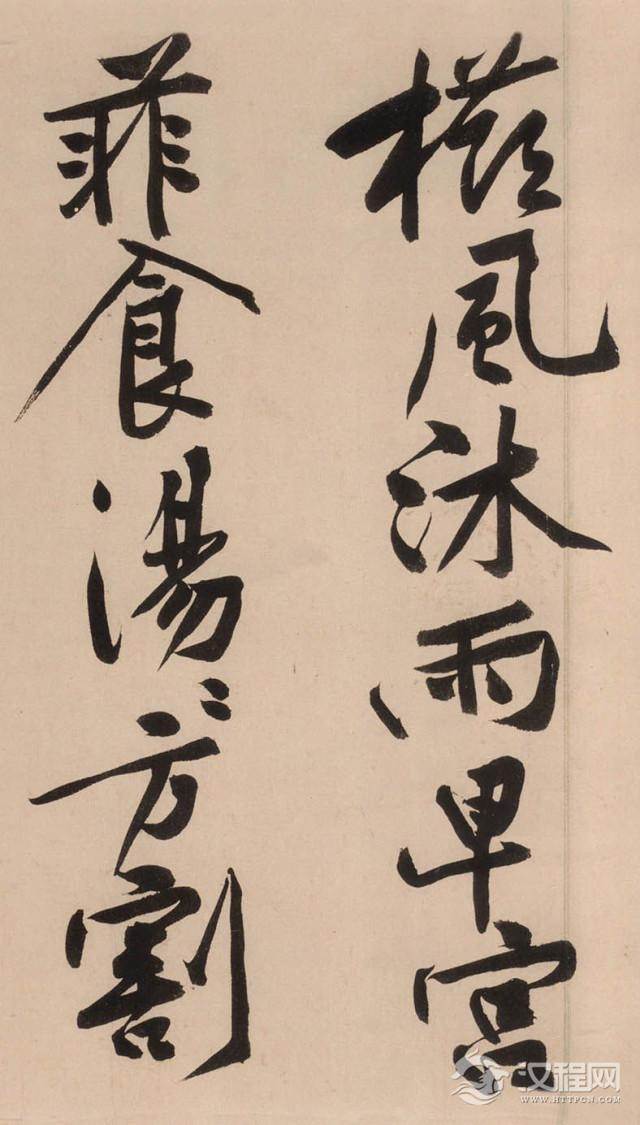 櫛風沐雨卑宮
菲食湯〻方割
汉程网
WWW.HTTPCN.COM